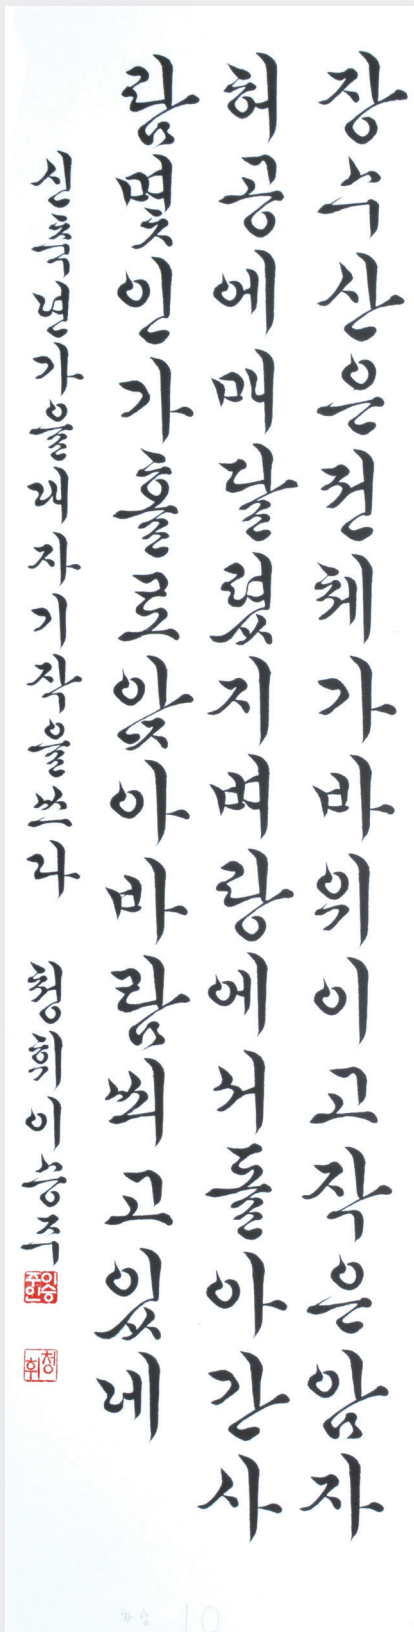 장수산은전체가바위이고작은암자
허공에매달렸지벼랑에서돌아간사
람몇인가홀로앉아바람씌고있네
신축년가을내자기작을쓰다 청휘이승주
이승주인
청휘
10